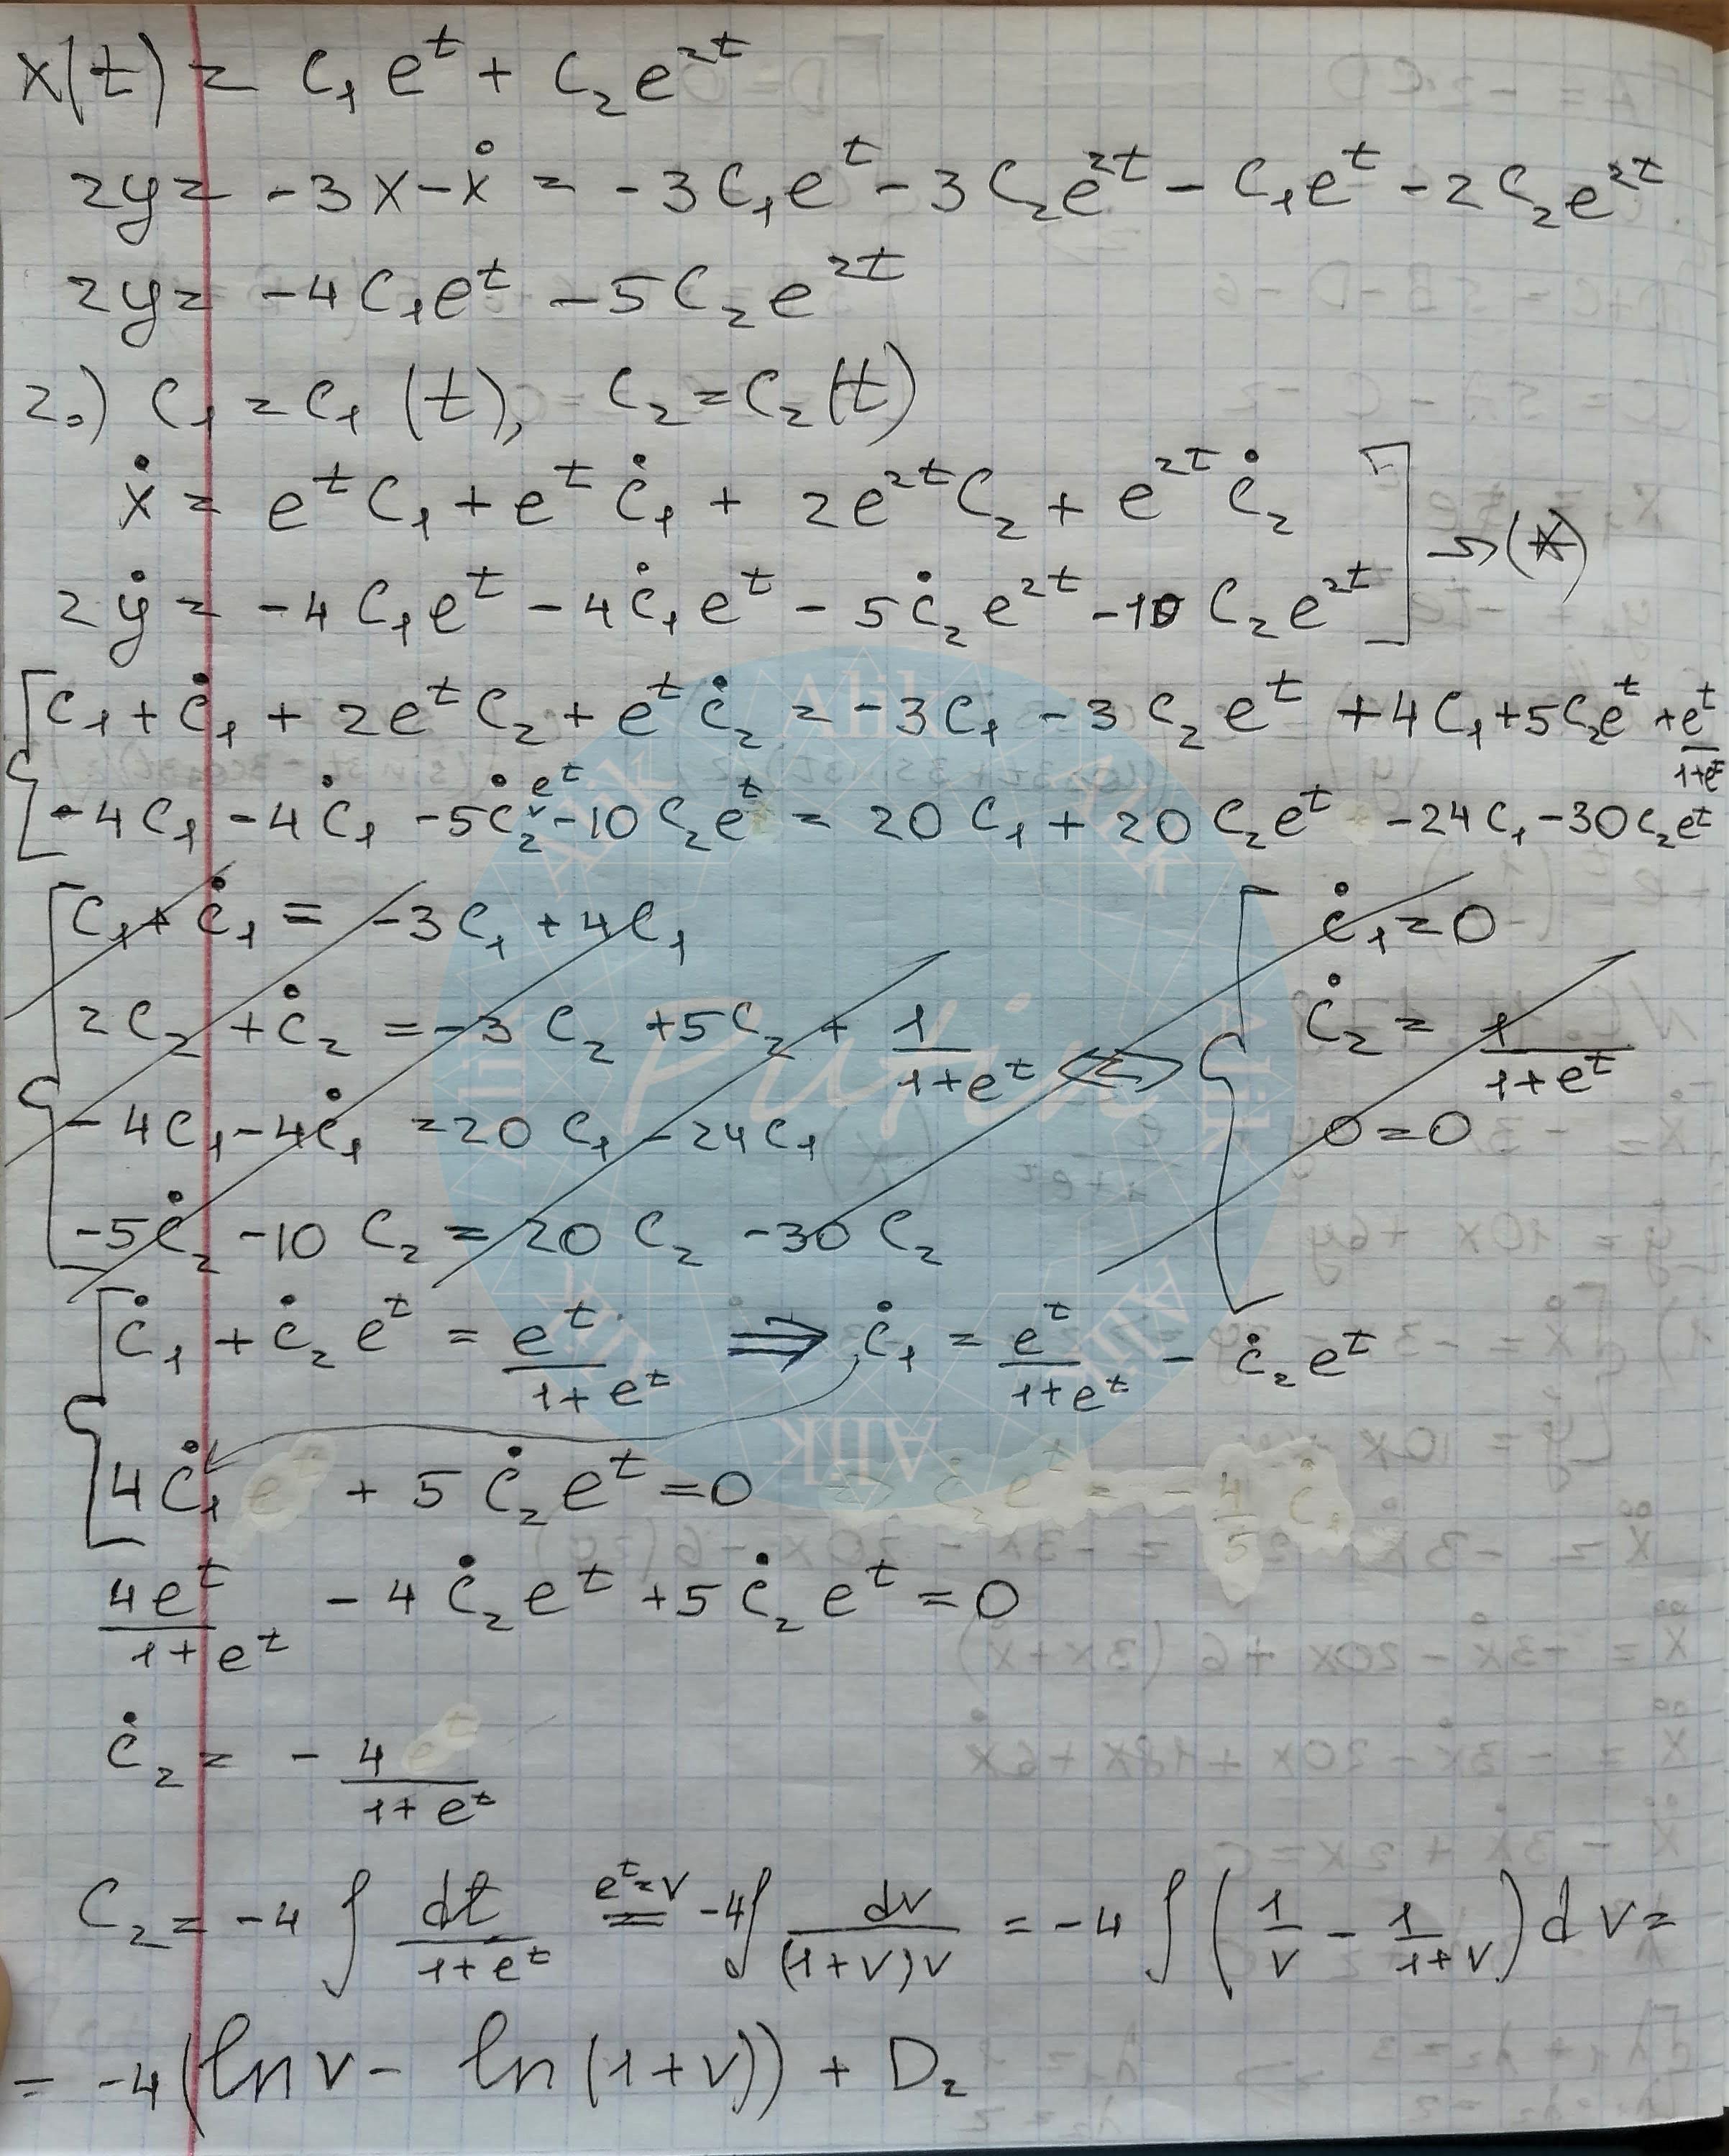 x(t) = C₁ eᵗ + C₂ e²ᵗ
2y = -3x - ẋ = -3C₁eᵗ - 3C₂e²ᵗ - C₁eᵗ - 2C₂e²ᵗ
2y = -4C₁eᵗ - 5C₂e²ᵗ
2.) C₁ = C₁(t), C₂ = C₂(t)
ẋ = eᵗC₁ + eᵗĊ₁ + 2e²ᵗC₂ + e²ᵗĊ₂
2ẏ = -4C₁eᵗ - 4Ċ₁eᵗ - 5Ċ₂e²ᵗ - 10C₂e²ᵗ → (*)
C₁ + Ċ₁ + 2eᵗC₂ + eᵗĊ₂ = -3C₁ - 3C₂eᵗ + 4C₁ + 5C₂eᵗ + eᵗ/(1+eᵗ)
-4C₁ - 4Ċ₁ - 5Ċ₂eᵗ - 10C₂eᵗ = 20C₁ + 20C₂eᵗ - 24C₁ - 30C₂eᵗ
C₁ + Ċ₁ = -3C₁ + 4C₁
2C₂ + Ċ₂ = -3C₂ + 5C₂ + 1/(1+eᵗ)
-4C₁ - 4Ċ₁ = 20C₁ - 24C₁
-5Ċ₂ - 10C₂ = 20C₂ - 30C₂
⇔
Ċ₁ = 0
Ċ₂ = 1/(1+eᵗ)
0 = 0
Ċ₁ + Ċ₂eᵗ = eᵗ/(1+eᵗ) ⇒ Ċ₁ = eᵗ/(1+eᵗ) - Ċ₂eᵗ
4Ċ₁ + 5Ċ₂eᵗ = 0
4eᵗ/(1+eᵗ) - 4Ċ₂eᵗ + 5Ċ₂eᵗ = 0
Ċ₂ = - 4/(1+eᵗ)
C₂ = -4 ∫ dt/(1+eᵗ) =(eᵗ=v) -4∫ dv/((1+v)v) = -4 ∫ (1/v - 1/(1+v)) dv =
= -4(ln v - ln(1+v)) + D₂
Alik
Alik
Alik
Alik
Alik
Alik
Alik
Alik
Putin